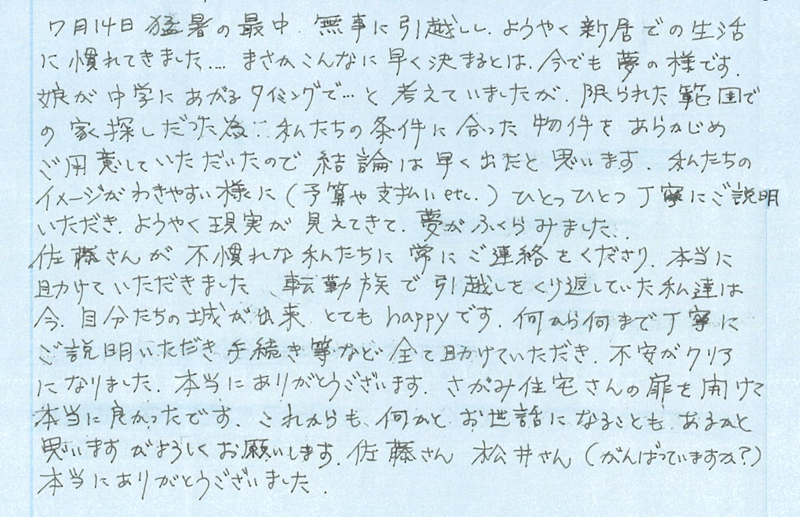 7月14日 猛暑の最中、無事に引越しし、ようやく新居での生活
に慣れてきました…. まさかこんなに早く決まるとは、今でも夢の様です.
娘が中学にあがるタイミングで…と考えていましたが、限られた範囲で
の家探しだった為、私たちの条件に合った物件をあらかじめ
ご用意していただいたので結論は早く出たと思います. 私たちの
イメージがわきやすい様に(予算や支払いetc.)ひとつひとつ丁寧にご説明
いただき、ようやく現実が見えてきて、夢がふくらみました..
佐藤さんが不慣れな私たちに常にご連絡をくださり、本当に
助けていただきました. 転勤族で引越しをくり返していた私達は
今、自分たちの城が出来、とてもhappyです. 何から何まで丁寧に
ご説明いただき手続き等など全て助けていただき、不安がクリア
になりました. 本当にありがとうございます. さがみ住宅さんの扉を開けて
本当に良かったです. これからも、何かとお世話になることも、あるかと
思いますがよろしくお願いします. 佐藤さん 松井さん(がんばっていますか?)
本当にありがとうございました.